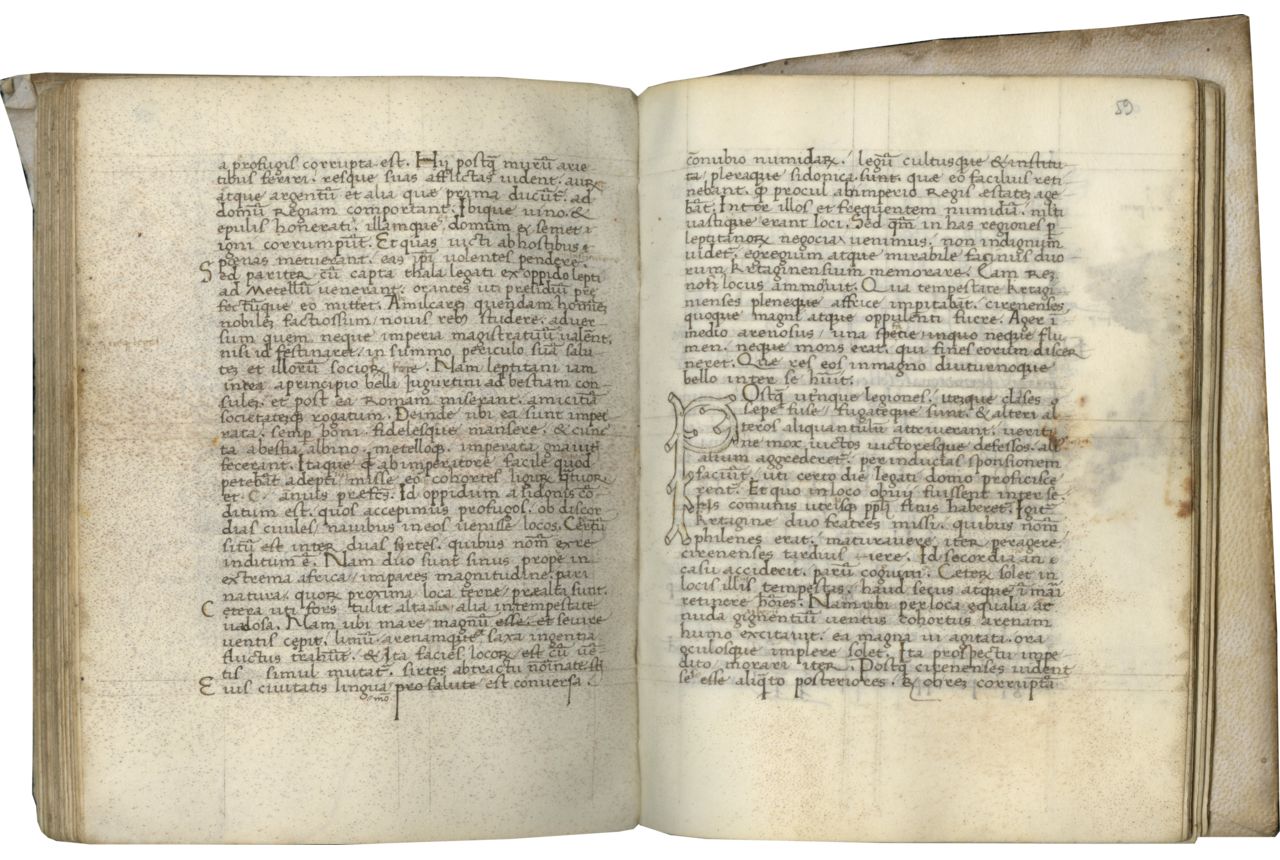 a profugis corrupta est. Hij postq̄ murū arie
tibus feriri. resque suas afflictas uident. aurꝝ
atque argentū et alia quae prima ducūt. ad
domū Regiam comportant. Ibique uino. &
epulis honerati. illamque domum & semet i
igni corrumpūt. Et quas uicti ab hostibus
poenas metuerant. eas ip̄i uolentes pendere.
Sed pariter cū capta thala legati ex oppido lepti
ad Metellū uenerant. orantes uti presidiū pre
fectūque eo mittet. Amilcarez quendam hominez
nobilez factiossum nouis reb studere. aduer
sum quem neque imperia magistratuū ualent.
nisi id festinaret, in summo periculo suā salu
tez et illorū socioꝝ fore. Nam leptitani iam
inde a principio belli Jugurtini ad bestiam con
sulez. et post ea Romam miserant. amicitiā
societatezq rogatum. Deinde ubi ea sunt impet
rata. semp boni. fidelesque mansere. & cunc
ta a bestia. albino. metelloq. imperata gnauit
fecerant. Itaque ab imperatore facile quod
petebāt adepti. misse eo cohortes ligurꝝ quatuor
et. C. anius prefectꝰ. Id oppidum a sidonis cō
ditum est. quos accepimus profugos. ob discor
dias ciuiles nauibus in eos uenisse locos. Cetērū
situ est inter duas syrtes. quibus nom̄ ex re
inditum ē. Nam duo sunt sinus prope in
extrema africa, impares magnitudine. pari
natura. quorꝝ proxima loca terre prealta sunt.
Cetera uti fors tulit alta alia. alia in tempestate
uadosa. Nam ubi mare magnū esse. et seuire
uentis cepit. limū. arenamque. & saxa ingentia
fluctus trahūt. & Ita facies locoꝝ est cū uē
tis simul mutat. sirtes ab tractu nōinate st̄
Eius ciuitatis lingua pro salute est conuersa.
mō
59
cōnubio numidaꝝ. legū cultusque & institu
ta, pleraque sidonica sunt. quae eo facilius reti
nebant. qꝫ procul ab imperio Regis aetatez age
bāt. Inter illos et frequentem numidiā. multi
uastique erant loci. Sed qm̄ in has regiones p
leptitanoꝝ negocia uenimus. non indignum
uidet. egregium atque mirabile facinus duo
rum Krtaginensium memorare. Eam Rez
nob locus ammouit. Qua tempestate Krtagi
nienses pleneque affrice impitabāt. cirenenses
quoque magni atque oppulenti fuere. Ager i
medio arenosus, una specie inquo neque flu
men. neque mons erat. qui fines eorum discer
neret. Quae res eos in magno diuturnoque
bello inter se hūit.
Postq̄ utrinque legiones. itezque clases
sepe fuse, fugateque sunt. & alteri al
teros aliquantulū attriuerant. ueriti
ne mox uictos uictoresque defessos. ali
alium aggrederet. per inducias sponsionem
faciūt. uti certo die legati domo proficisce
rent. Et quo in loco obuij fuissent inter se.
is comunis utriusq ppli finis haberet. Igit
Krtagine duo fratres missi. quibus nom̄
philenes erat. maturauere iter peragere.
cirenenses tardius iere. Id secordia an
casu acciderit. parū cognoui. Ceterꝝ solet in
locis illis tempestas. haud secus atque i mari
retinere hōies. Nam ubi per loca equalia at
nuda gignentiū uentus cohortus arenam
humo excitauit. ea magna ui agitata. ora
oculosque implere solet. Ita prospectu impe
dito, morari iter. Postq̄ cirenenses uident
se esse aliqto posteriores. & ob rez corruptā